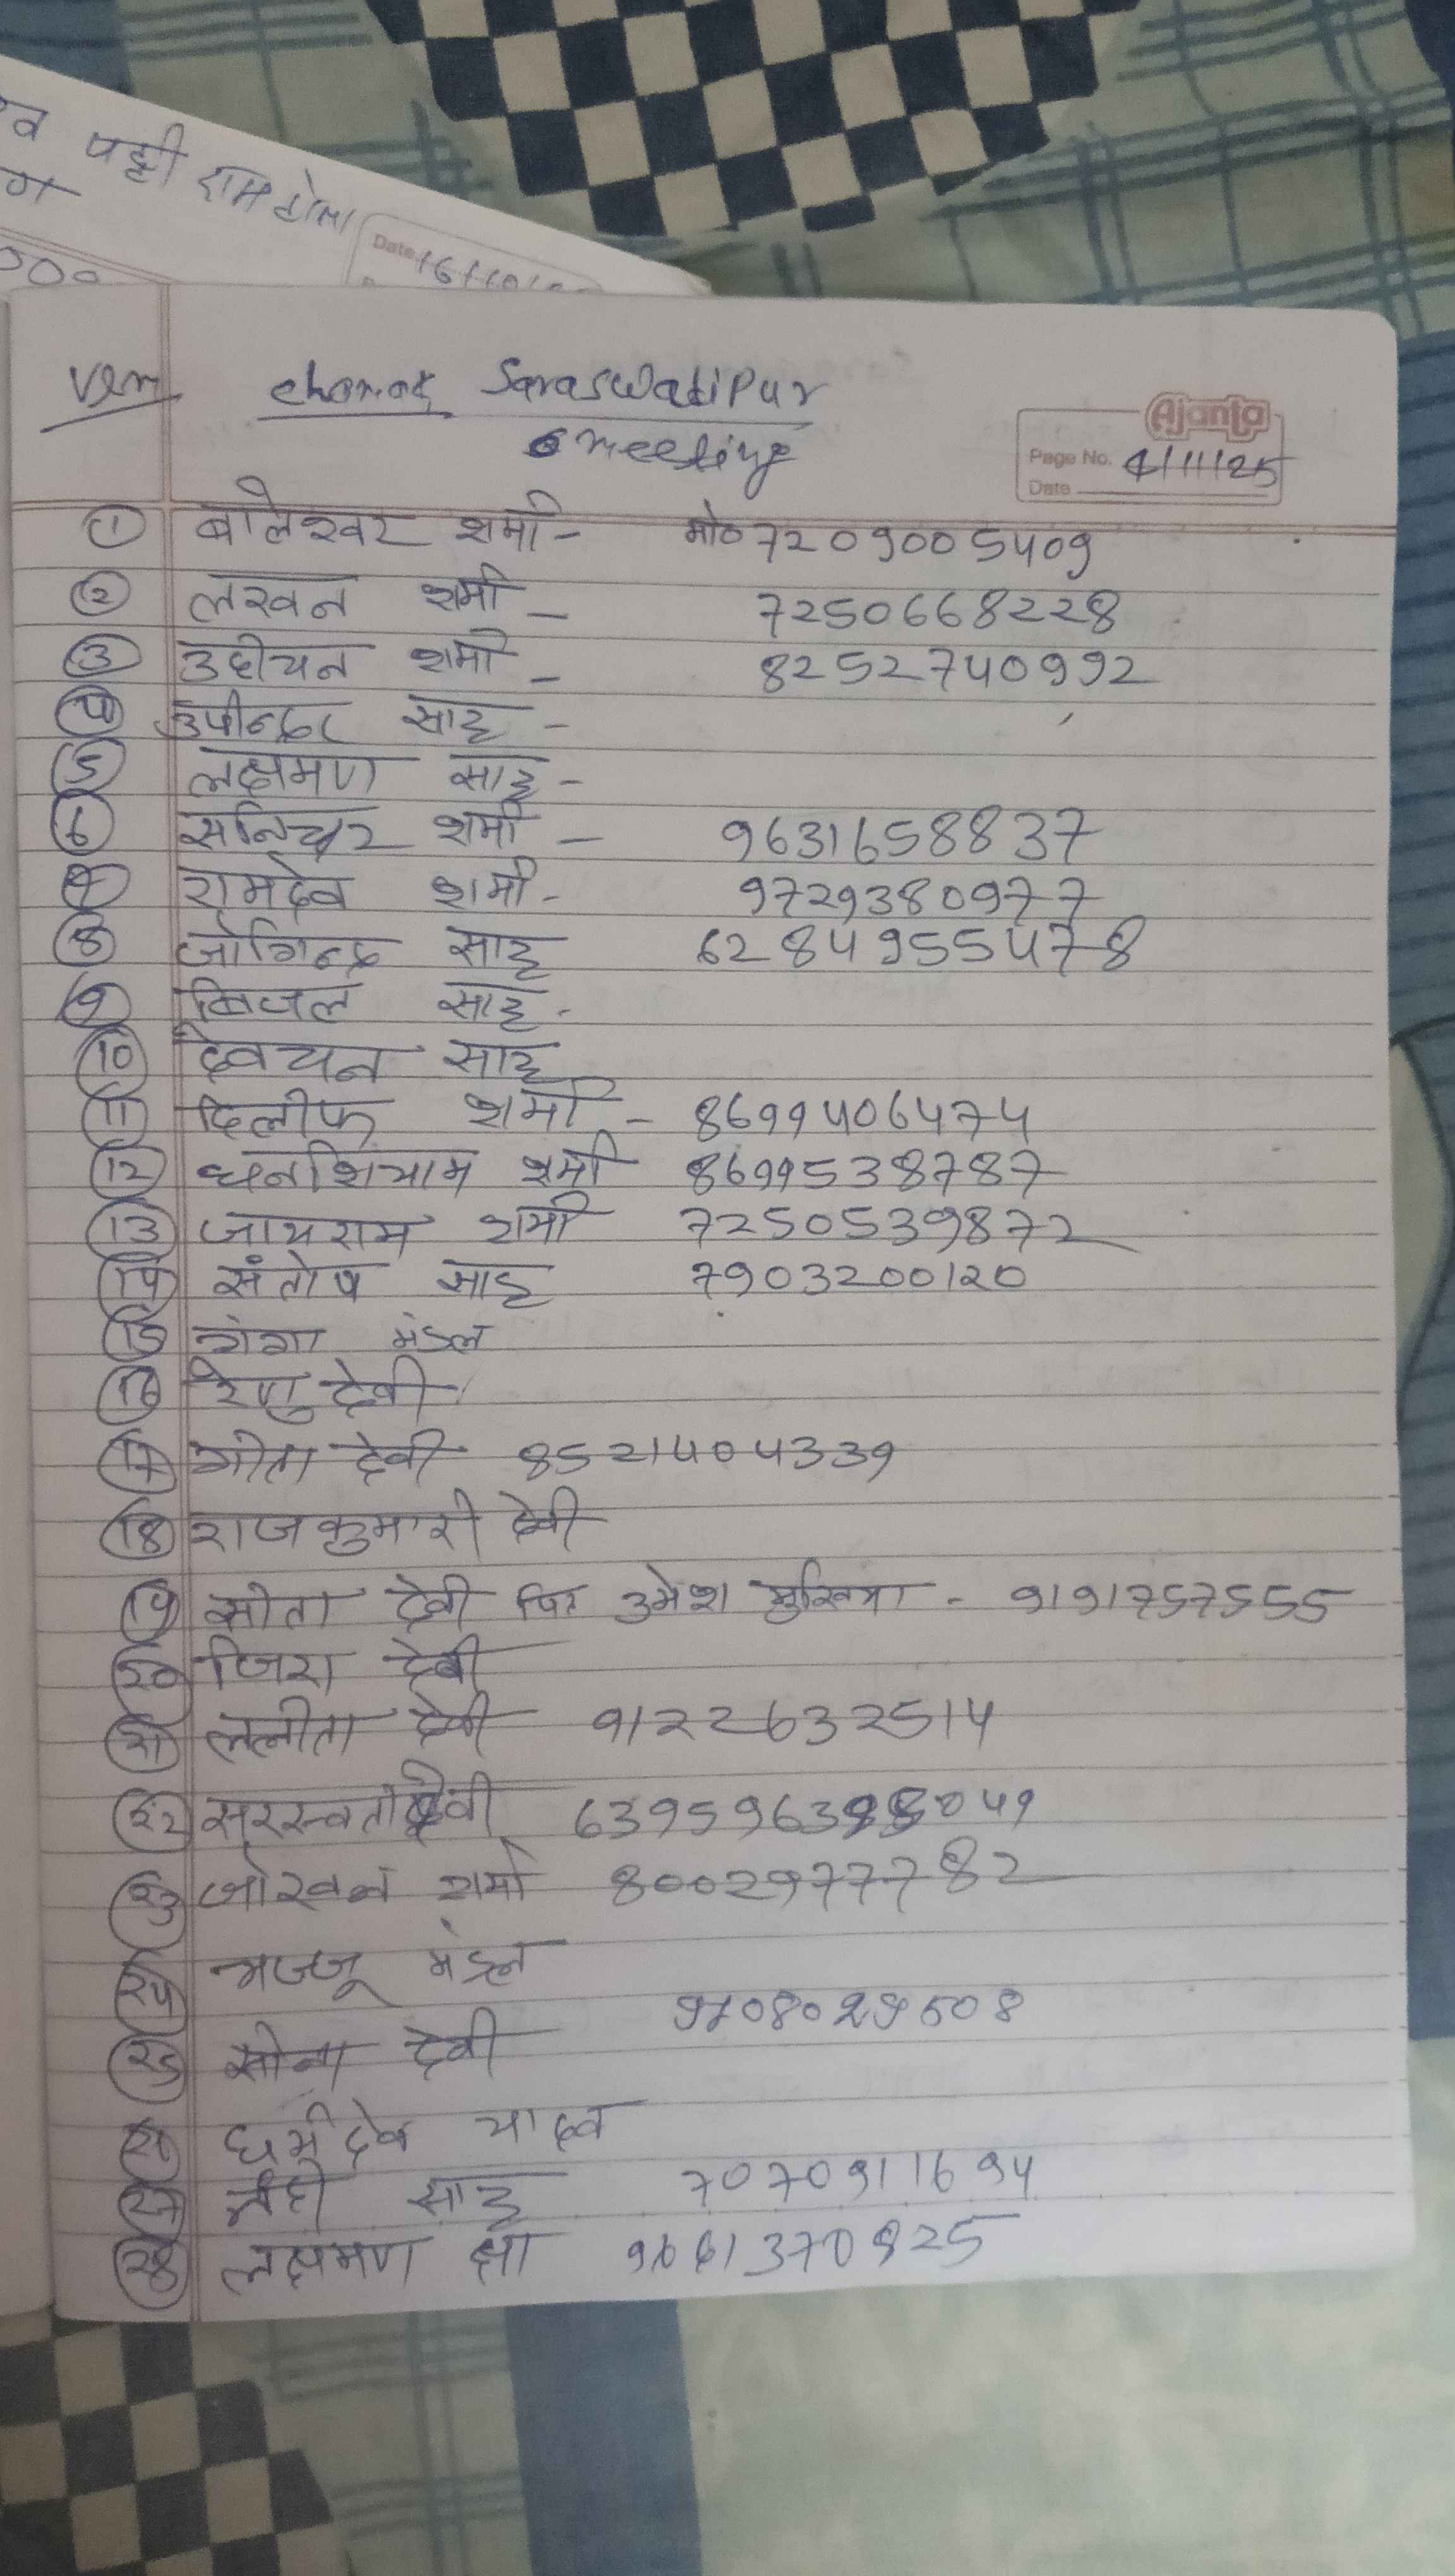 पट्टी राम टोला
000
Date 16/10/
chanak Saraswatipur
meeting
Ajanta
Page No. 4/11/25
Date
① बालेश्वर शर्मा - मो० 7209005409
② लखन शर्मा - 7250668228
③ उदीचन शर्मा - 8252740992
④ उपीन्दर साह -
⑤ लक्षमण साह -
⑥ सनिचर शर्मा - 9631658837
⑦ रामदेव शर्मा - 9729380977
⑧ जोगिन्द्र साह 6284955478
⑨ बिजल साह -
⑩ देवचन साह
⑪ दिलीफ शर्मा - 8699406474
⑫ धनशियाम शर्मा 8699538787
⑬ जायराम शर्मा 7250539872
⑭ संतोष साह 7903200120
⑮ गंगा मंडल
⑯ रेणु देवी
⑰ गीता देवी 8521404339
⑱ राजकुमारी देवी
⑲ सीता देवी उमेश मुखिया - 9191757555
⑳ जिरा देवी
㉑ ललीता देवी 9122632514
㉒ सरस्वती देवी
㉓ जोखन शर्मा 8002977782
㉔ मंडल
㉕ सोना देवी
㉖ धर्मदेव यादव
㉗ साह 7070911694
㉘ लक्षमण झा